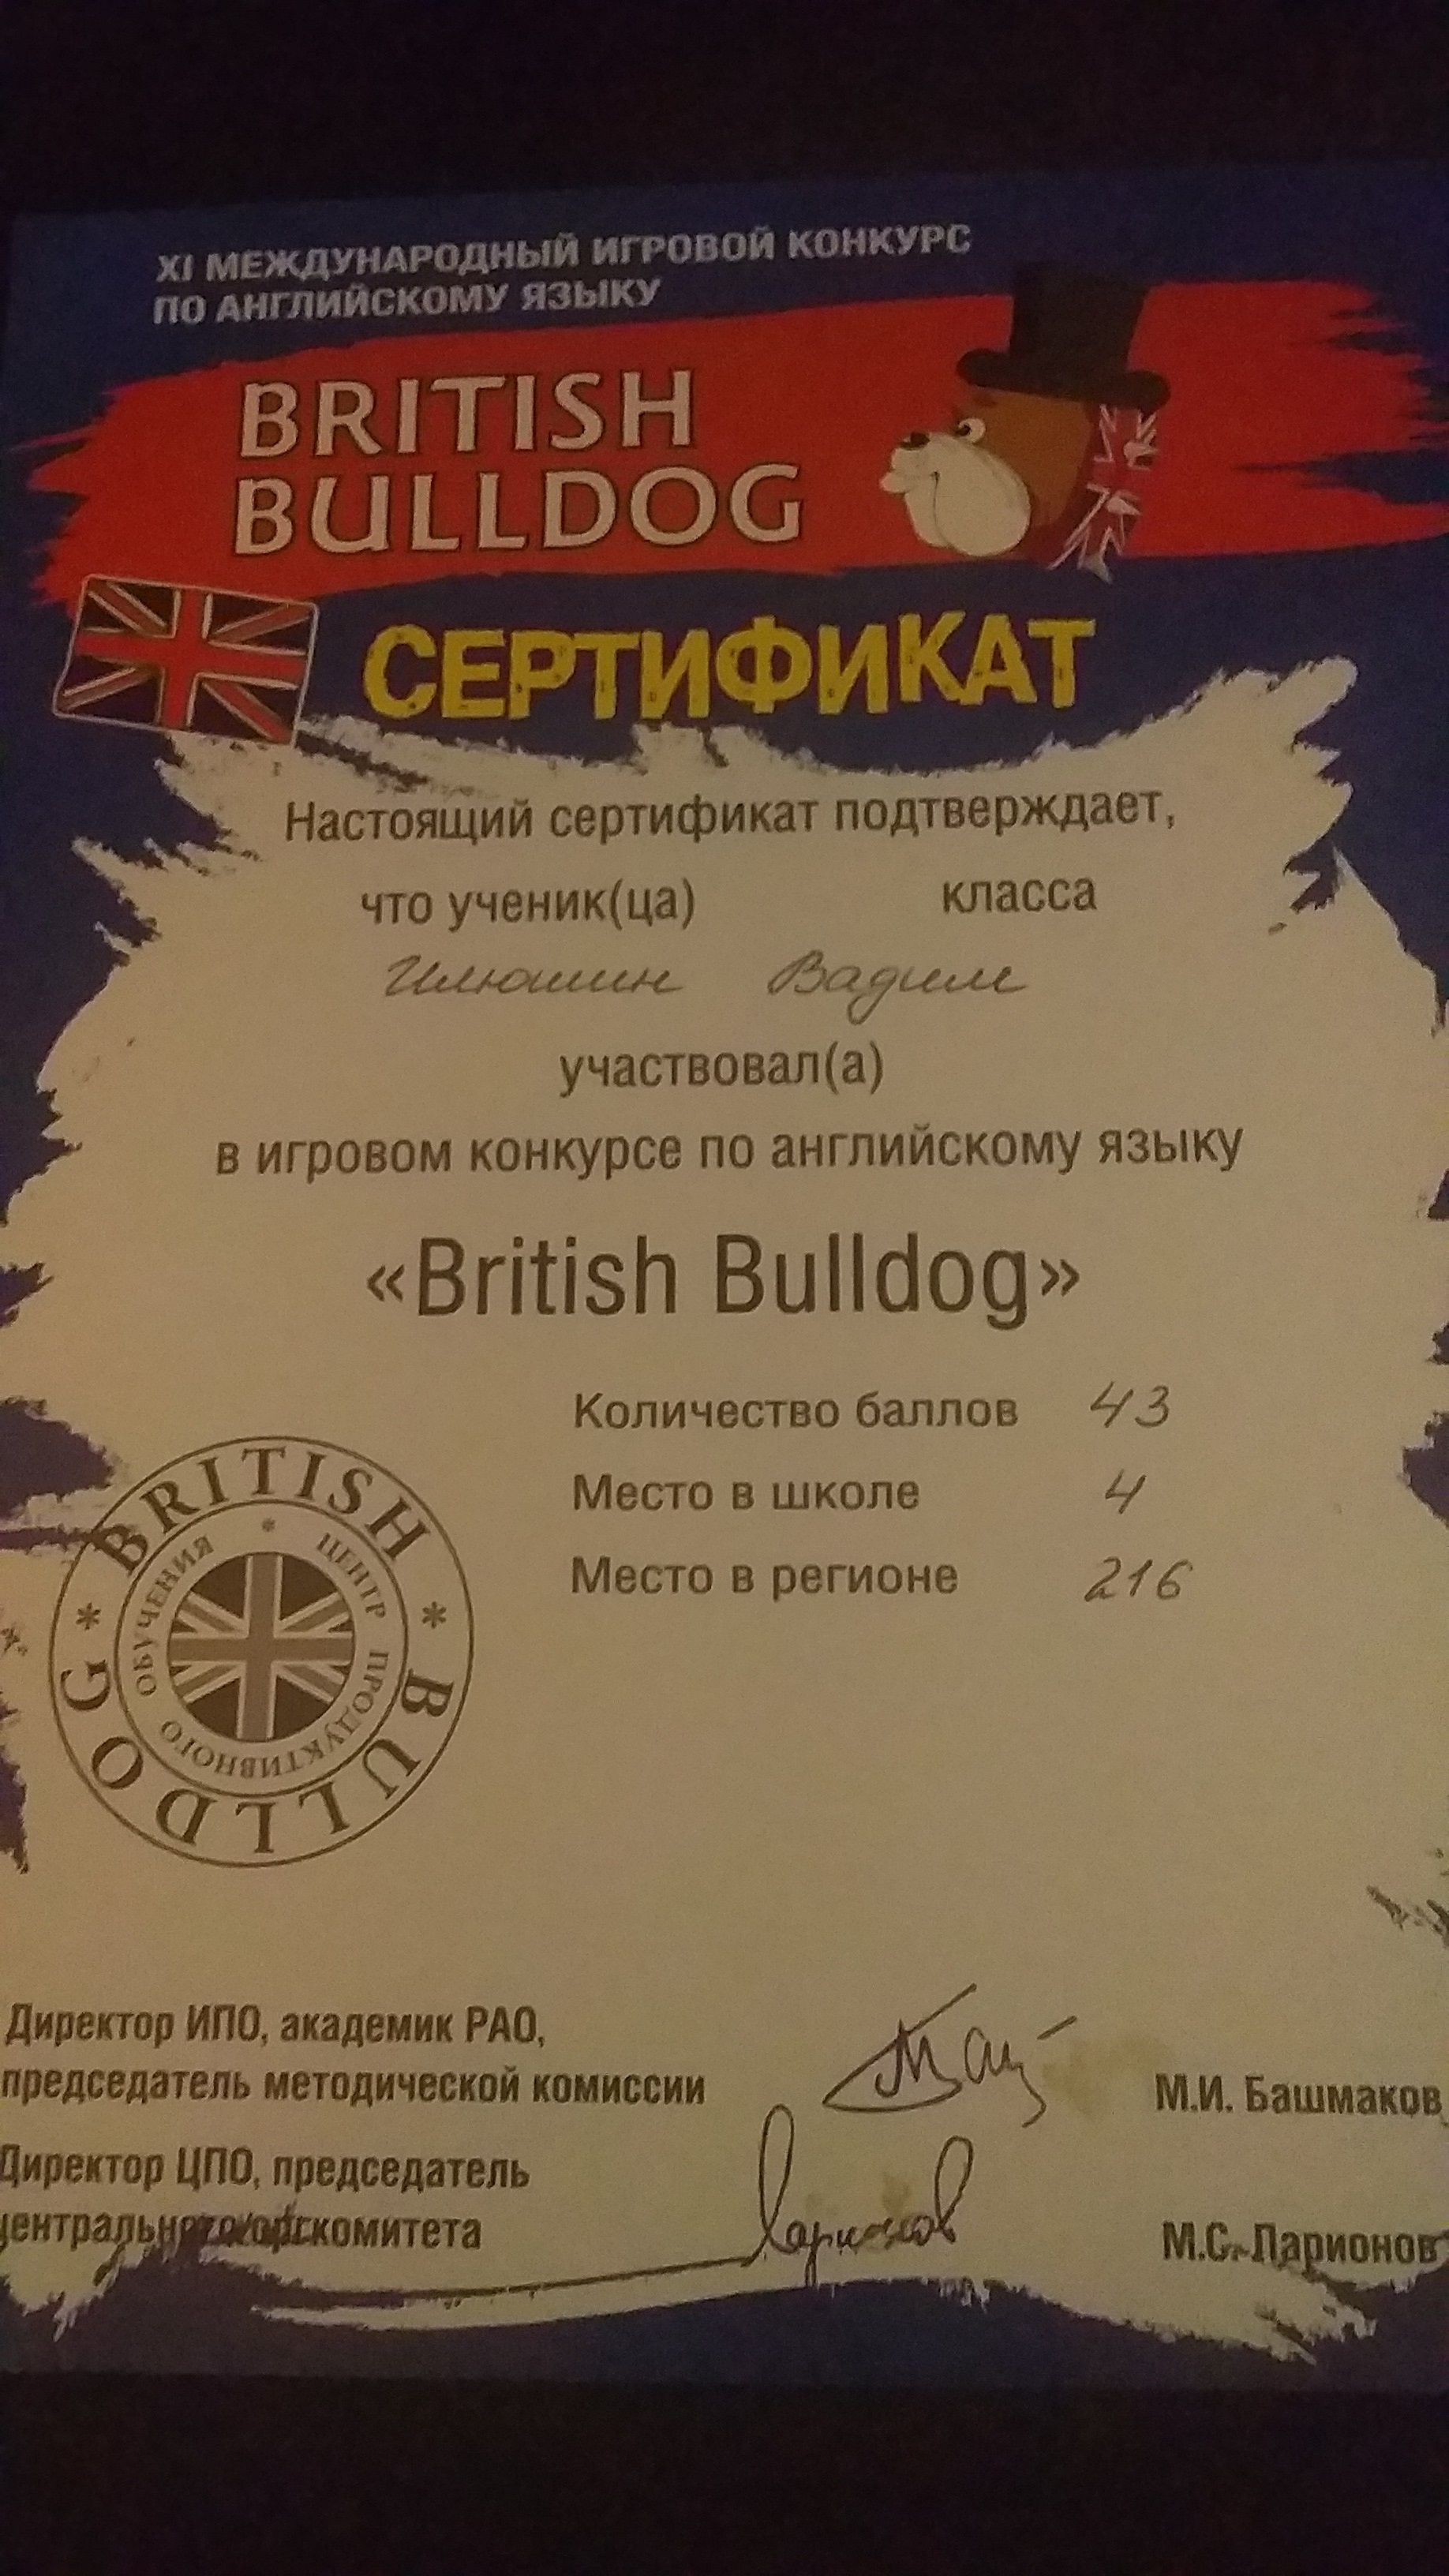 XI МЕЖДУНАРОДНЫЙ ИГРОВОЙ КОНКУРС
ПО АНГЛИЙСКОМУ ЯЗЫКУ
BRITISH
BULLDOG
СЕРТИФИКАТ
Настоящий сертификат подтверждает,
что ученик(ца) класса
Илюшин Вадим
участвовал(а)
в игровом конкурсе по английскому языку
«British Bulldog»
Количество баллов 43
Место в школе 4
Место в регионе 216
BRITISH * BULLDOG *
* ЦЕНТР ПРОДУКТИВНОГО ОБУЧЕНИЯ
Директор ИПО, академик РАО,
председатель методической комиссии М.И. Башмаков
Директор ЦПО, председатель
центрального оргкомитета Ларионов М.С. Ларионов